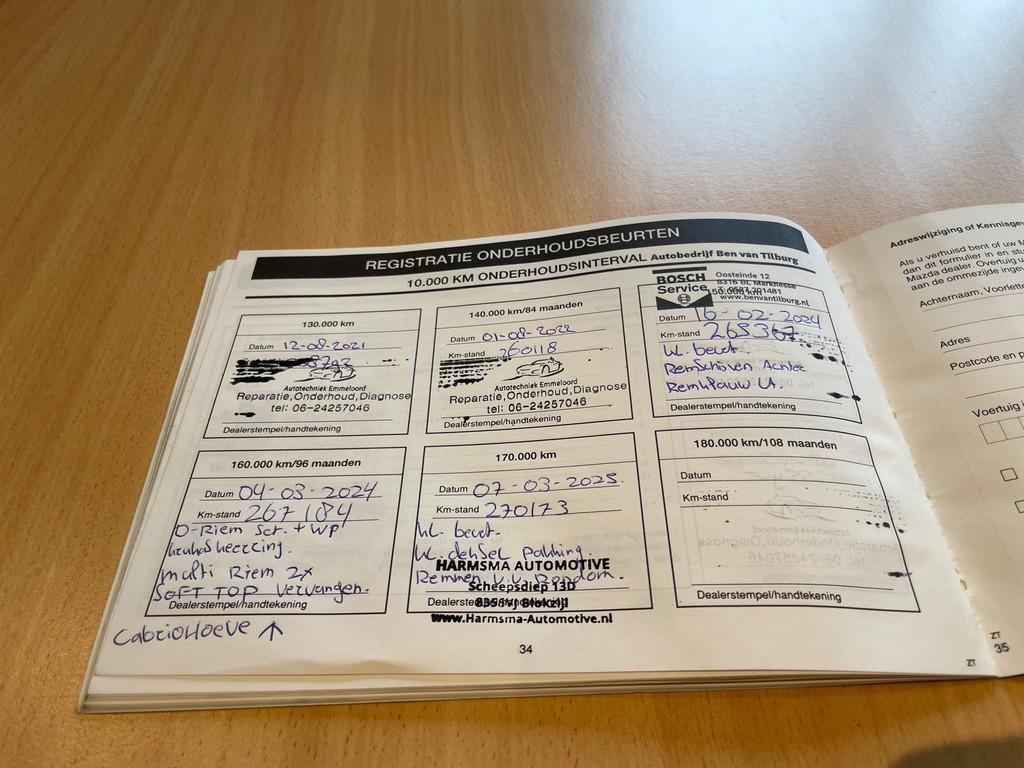 REGISTRATIE ONDERHOUDSBEURTEN
10.000 KM ONDERHOUDSINTERVAL
130.000 km
Datum 12-08-2021
Autotechniek Emmeloord
Reparatie,Onderhoud,Diagnose
tel: 06-24257046
Dealerstempel/handtekening
140.000 km/84 maanden
Datum 01-08-2022
Km-stand 260118
Autotechniek Emmeloord
Reparatie,Onderhoud,Diagnose
tel: 06-24257046
Dealerstempel/handtekening
Autobedrijf Ben van Tilburg
BOSCH
Service
Oosteinde 12
8316 BL Marknesse
www.benvantilburg.nl
Datum 16-02-2024
Km-stand 265367
kl. beurt.
Remschoven Achter
Remklauw LA.
Dealerstempel/handtekening
160.000 km/96 maanden
Datum 04-03-2024
Km-stand 267184
D-Riem Set. + WP
krukas keerring.
multi Riem 2x
SOFT TOP vervangen.
Dealerstempel/handtekening
CabrioHoeve ↑
170.000 km
Datum 07-03-2025
Km-stand 270173
kl. beurt.
kl. deksel pakking.
Remmen v.v. Rondom.
HARMSMA AUTOMOTIVE
Scheepsdiep 13D
Blokzijl
www.Harmsma-Automotive.nl
180.000 km/108 maanden
Datum
Km-stand
Dealerstempel/handtekening
34
ZT
Adreswijziging of
Als u verhuisd bent of uw
dan dit formulier in en
Mazda dealer. Overtuig
aan de ommezijde
Achternaam,
Adres
Postcode en
Voertuig
ZT
35